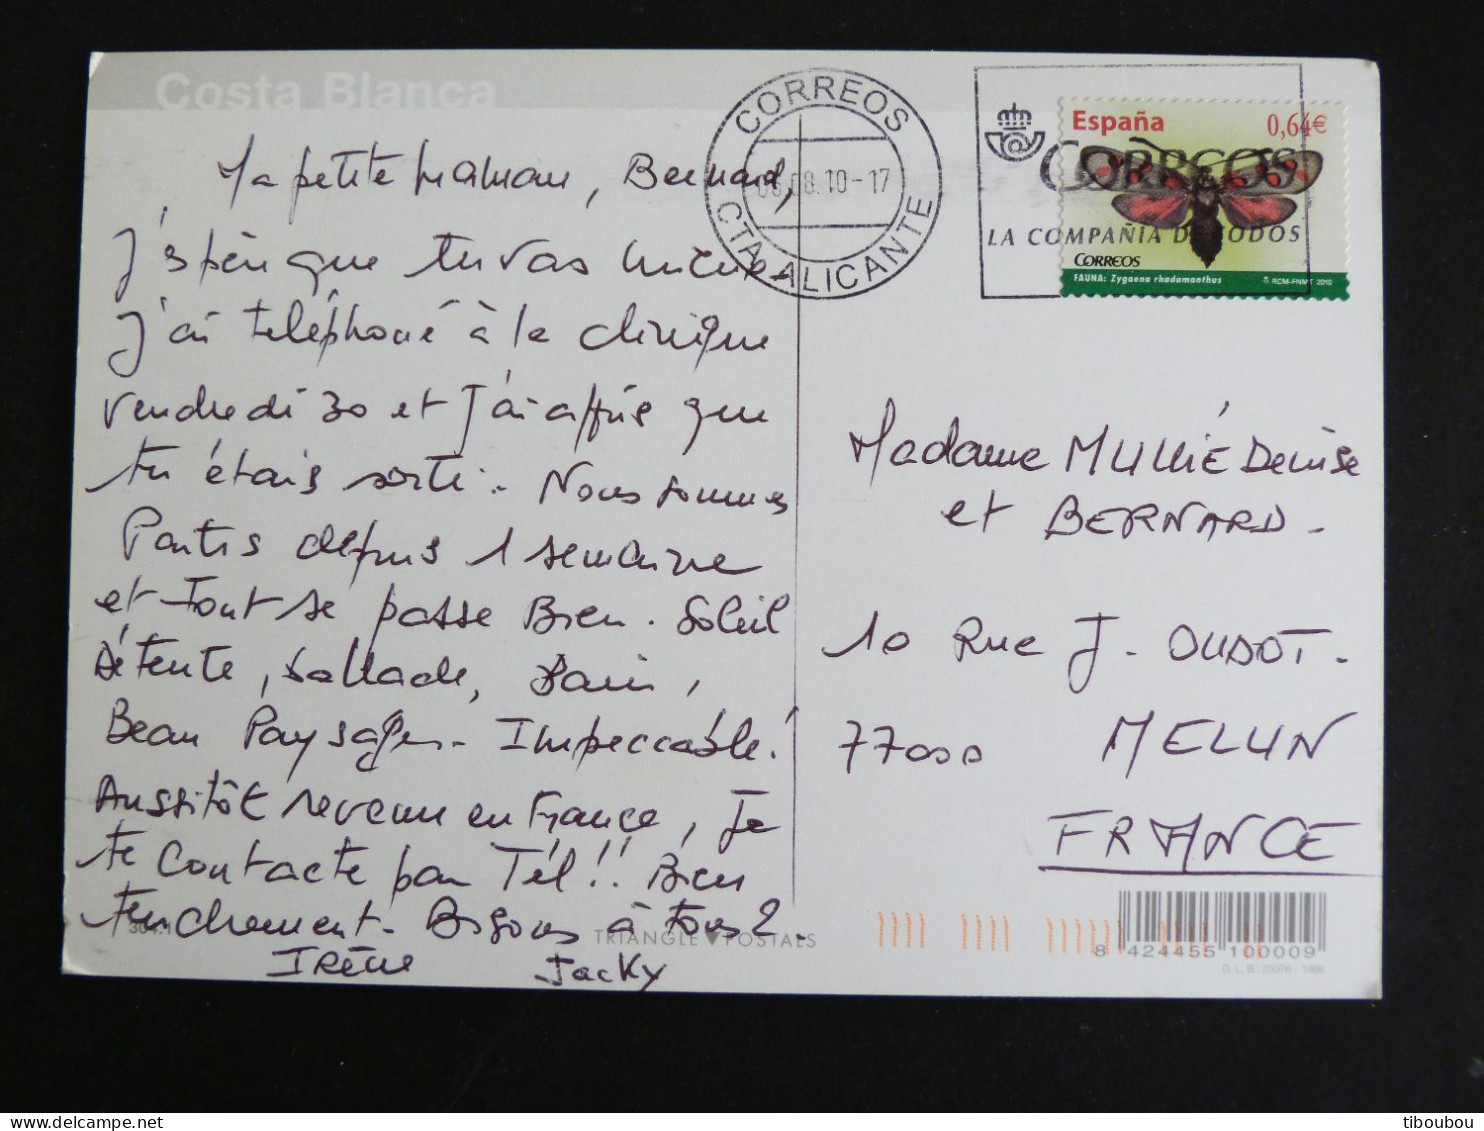 Costa Blanca
Ma petite maman, Bernard,
J'espère que tu vas mieux.
J'ai téléphoné à la clinique
vendredi 30 et J'ai appris que
tu étais sorti. Nous sommes
Partis depuis 1 semaine
et tout se passe Bien. Soleil
Détente, ballade, bain,
Beau Paysages - Impeccable!
Aussitôt revenu en France, Je
te contacte par Tél!! Bien
tendrement. Bisous à tous 2.
Irène Jacky
304.1
TRIANGLE POSTALS
CORREOS
08.10-17
CTA-ALICANTE
CORREOS
LA COMPAÑIA DE TODOS
España 0,64€
CORREOS
FAUNA: Zygaena rhadamanthus © RCM-FNMT 2010
Madame MULLIÉ Denise
et BERNARD.
10 Rue J. OUDOT.
77000 MELUN
FRANCE
8 424455 100009
D. L. B. 23976 - 1998
tiboubou